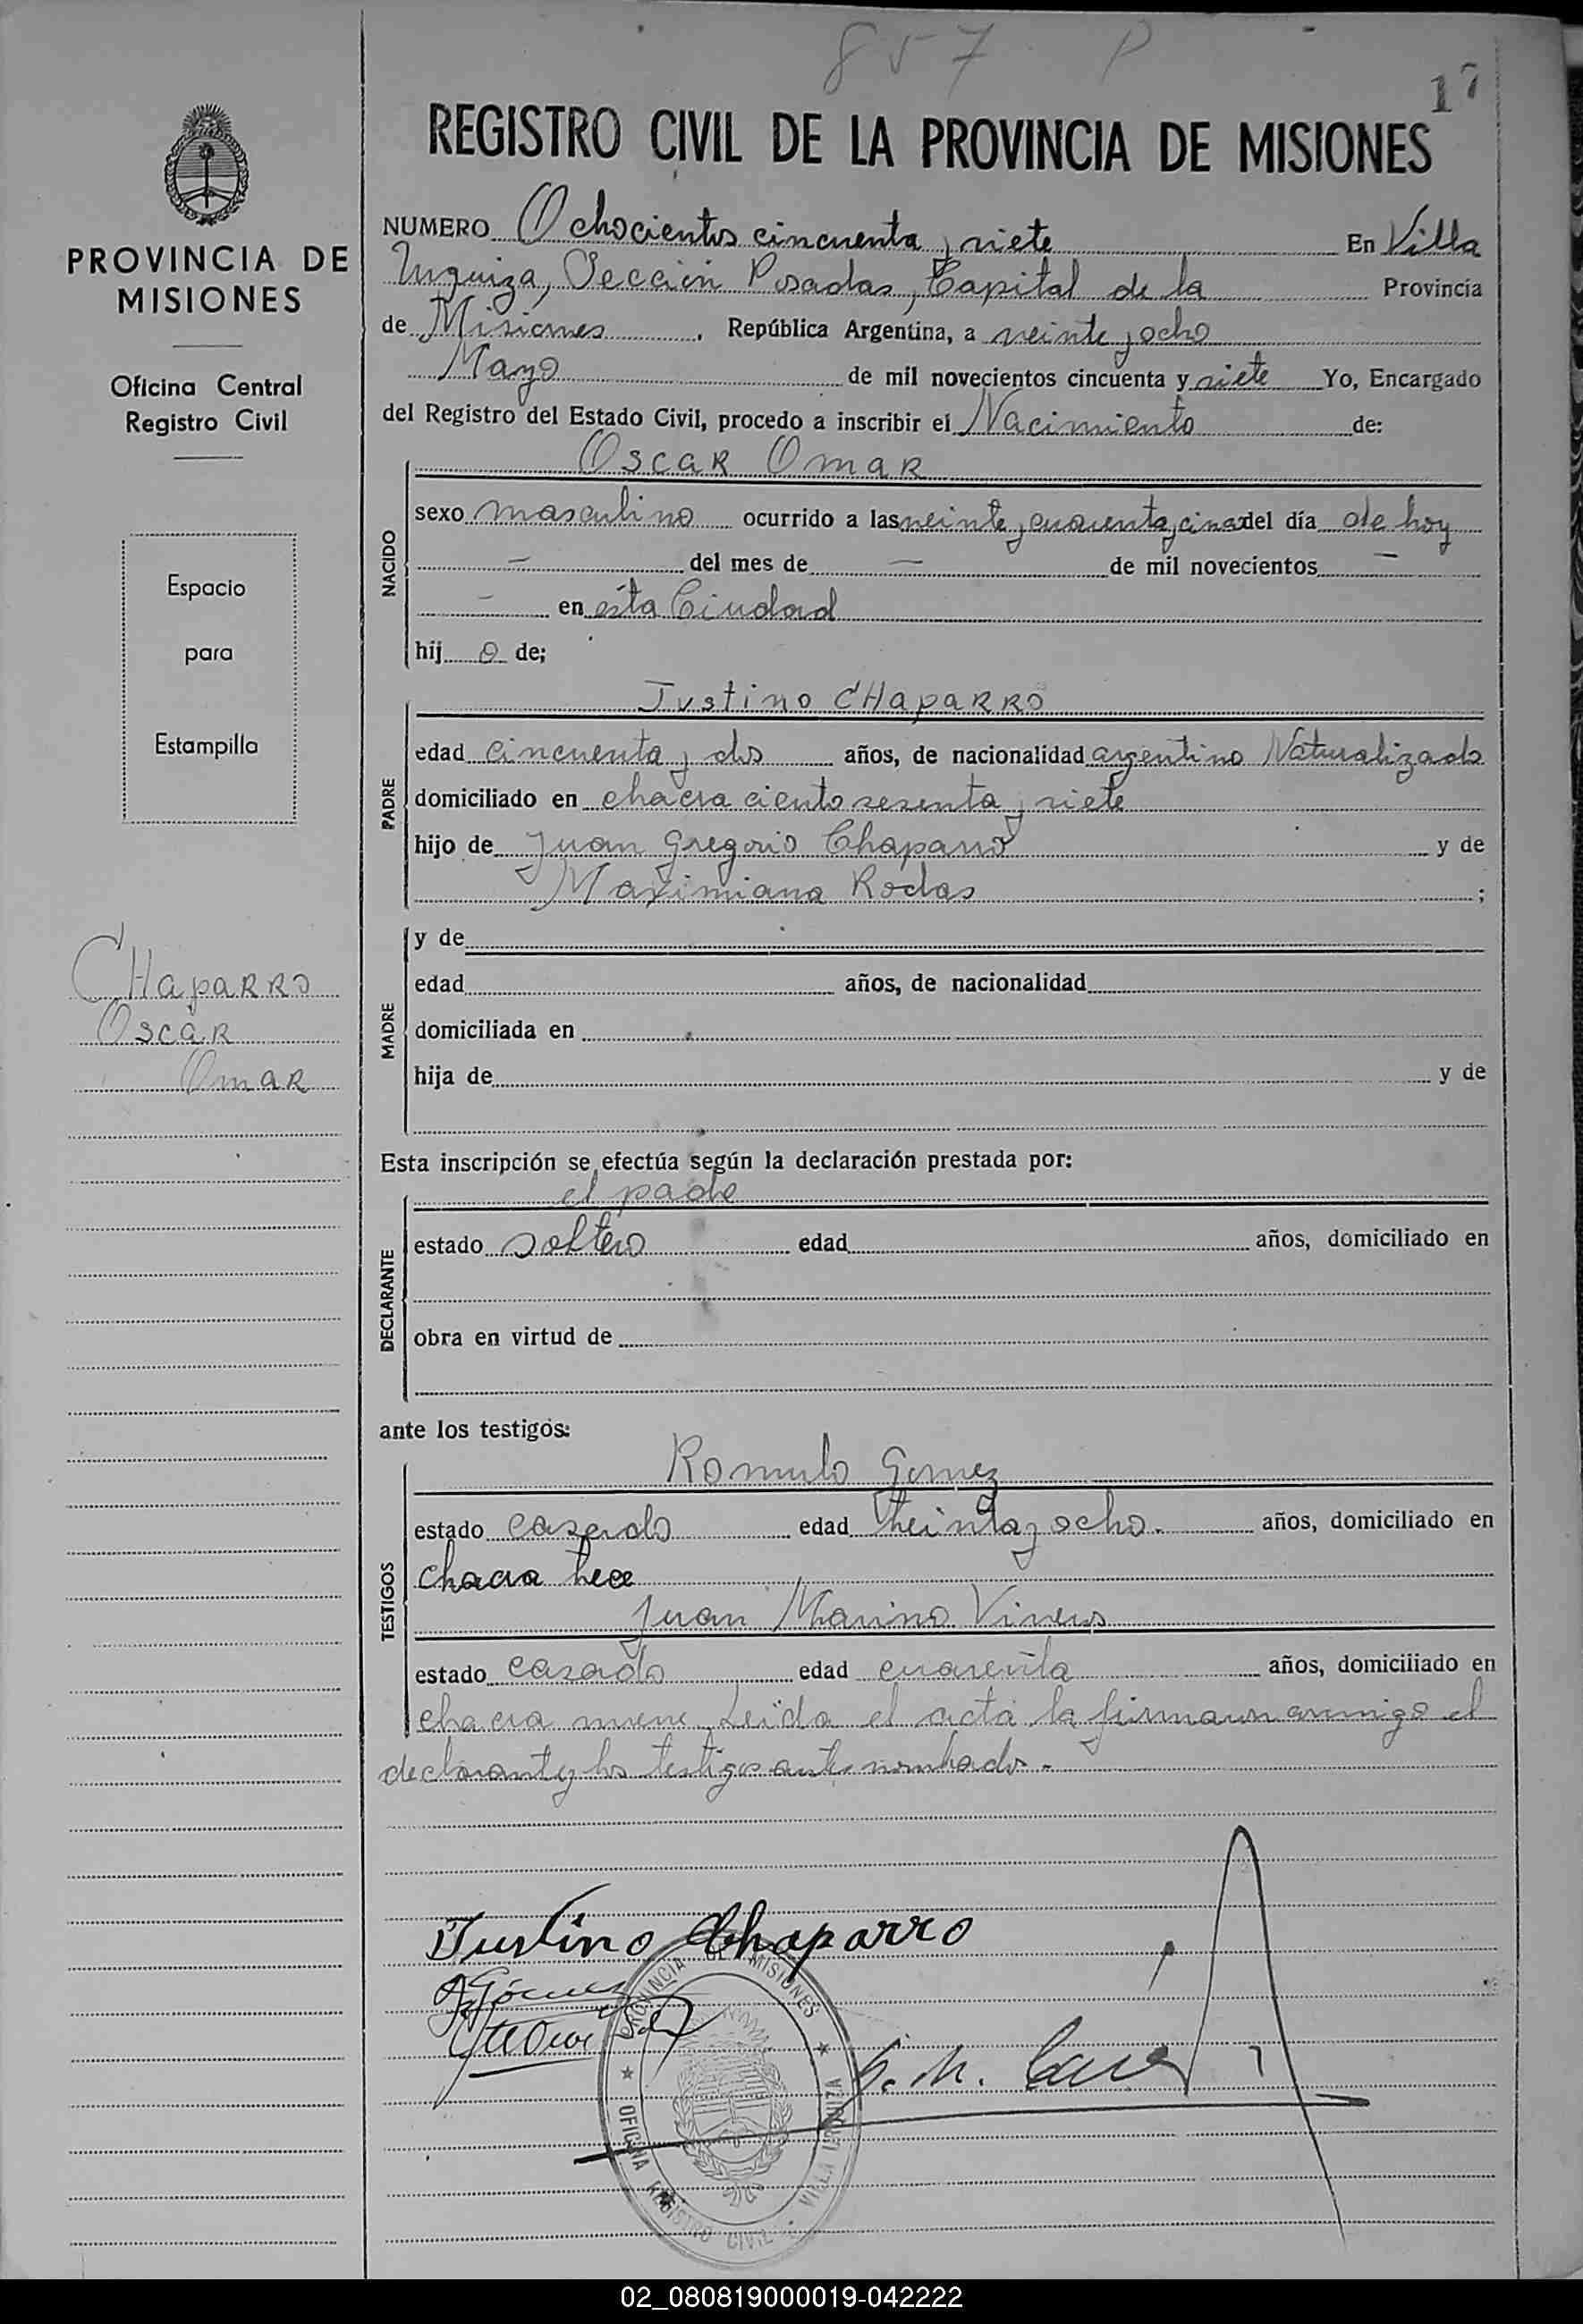 857 P
17
REGISTRO CIVIL DE LA PROVINCIA DE MISIONES
PROVINCIA DE
MISIONES
Oficina Central
Registro Civil
Espacio
para
Estampilla
CHapaRRo
OscaR
OmaR
NUMERO Ochocientos cincuenta y siete En Villa
Urquiza, Sección Posadas, Capital de la Provincia
de Misiones, República Argentina, a veinte y ocho
Mayo de mil novecientos cincuenta y siete Yo, Encargado
del Registro del Estado Civil, procedo a inscribir el Nacimiento de:
NACIDO
OscaR OmaR
sexo masculino ocurrido a las veinte y cuarenta y cinco del día de hoy
– del mes de – de mil novecientos –
– en ésta Ciudad
hij o de;
PADRE
Justino CHapaRRo
edad cincuenta y dos años, de nacionalidad argentino Naturalizado
domiciliado en chacra ciento sesenta y siete
hijo de Juan Gregorio Chaparro y de
Maximiana Rodas ;
MADRE
y de
edad años, de nacionalidad
domiciliada en
hija de y de
Esta inscripción se efectúa según la declaración prestada por:
DECLARANTE
el padre
estado soltero edad años, domiciliado en
obra en virtud de
ante los testigos:
TESTIGOS
Romulo Gomez
estado casado edad treinta y ocho. años, domiciliado en
chacra trece
Juan Marino
estado casado edad cuarenta años, domiciliado en
chacra nueve Leída el acta la firmaron conmigo el
declarante y los testigos antes nombrados.-
Justino Chaparro
Gómez
PROVINCIA DE MISIONES
OFICINA REGISTRO CIVIL VILLA URQUIZA
02_080819000019-042222